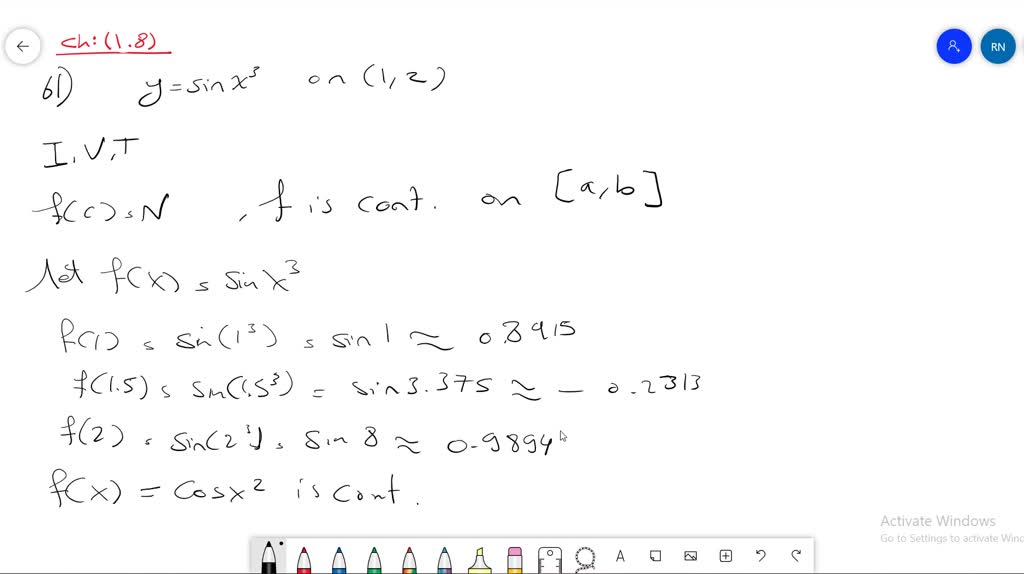 ch: (1.8)
RN
61) y = sin x³ on (1, 2)
I.V.T
f(c) = N , f is cont. on [a, b]
let f(x) = sin x³
f(1) = sin(1³) = sin 1 ≈ 0.8915
f(1.5) = sin(1.5³) = sin 3.375 ≈ - 0.2313
f(2) = sin(2³) = sin 8 ≈ 0.9894
f(x) = cos x² is cont.
Activate Windows
Go to Settings to activate Winc
A